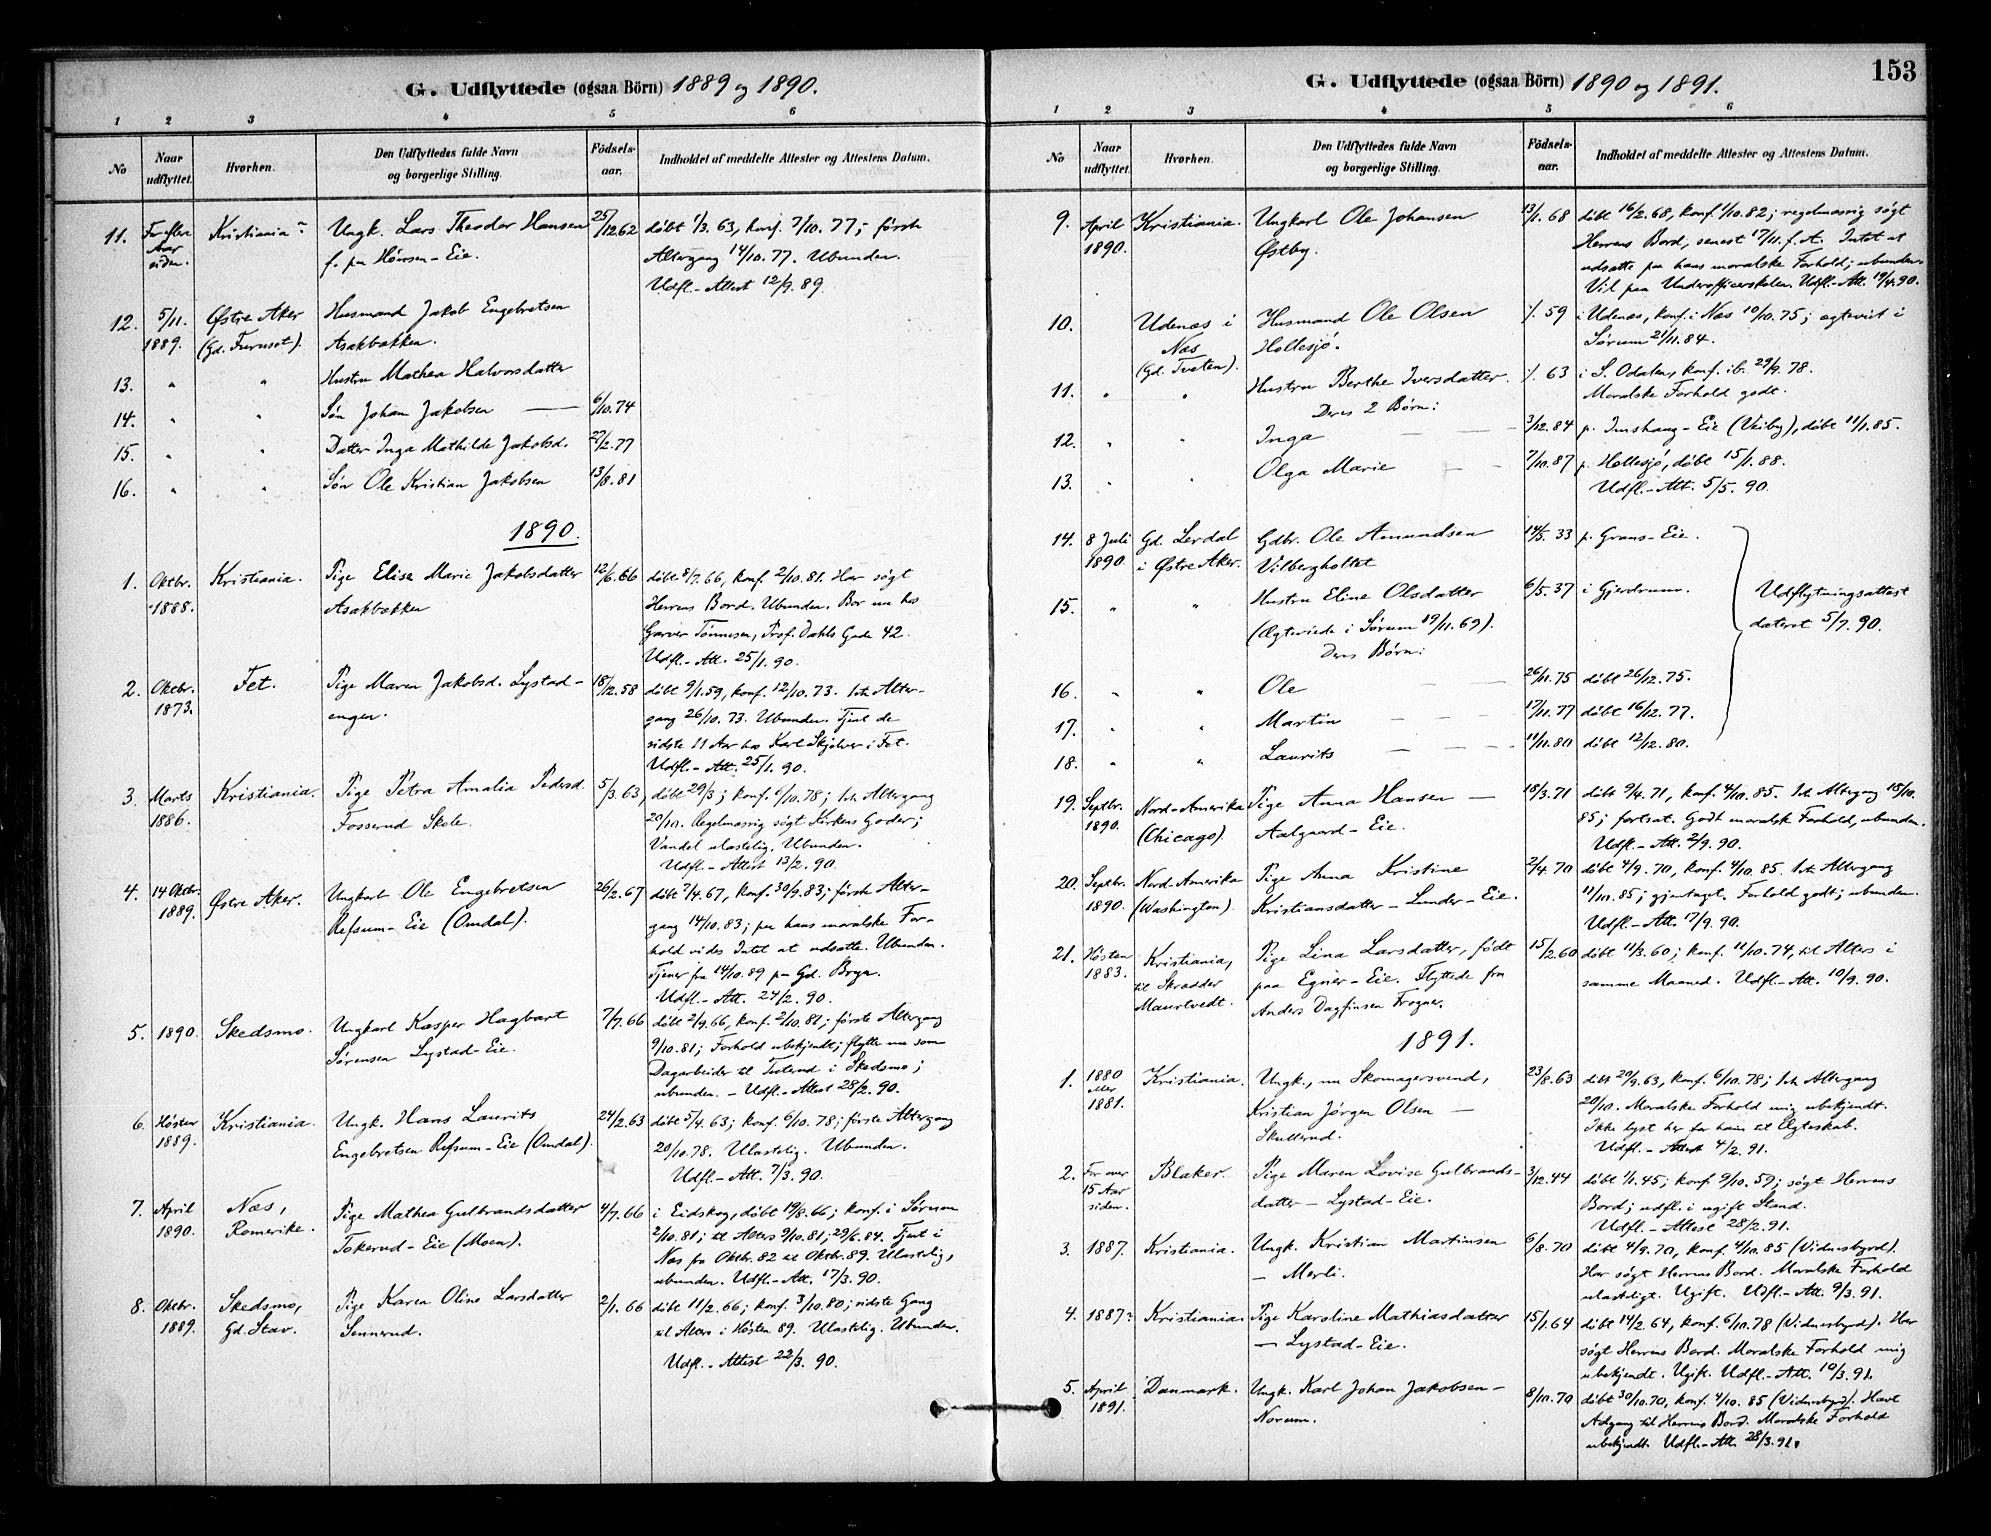 G. Udflyttede (ogsaa Börn) 1889 og 1890.
1 2 3 4 5 6
No
Naar udflyttet.
Hvorhen.
Den Udflyttedes fulde Navn og borgerlige Stilling.
Födsels-aar.
Indholdet af meddelte Attester og Attestens Datum.
11. For flere Aar siden. Kristiania Ungk. Lars Theodor Hansen 25/12 62 döbt 1/3. 63, konf. 7/10. 77; förste
f. paa Hönsen-Eie. Altergang 14/10. 77. Ubunden.
Udfl.-Attest 12/9. 89.
12. 5/11. 1889. Östre Aker (Gd. Furuset). Husmand Jakob Engebretsen
Asakbakken.
13. " " Hustru Mathea Halvorsdatter
14. " " Sön Johan Jakobsen — 6/10. 74
15. " " Datter Inga Mathilde Jakobsd. 27/2. 77
16. " " Sön Ole Kristian Jakobsen 13/8. 81
1890.
1. Oktbr. 1888. Kristiania. Pige Elise Marie Jakobsdatter 12/6. 66 döbt 8/7. 66, konf. 2/10. 81. Har sögt
Asakbakken Herrens Bord. Ubunden. Bor nu hos
Garver Tönnesen, Prof. Dahls Gade 42.
Udfl.-Att. 25/1. 90.
2. Oktbr. 1873. Fet. Pige Maren Jakobsd. Lystad- 18/12. 58 döbt 9/1. 59, konf. 12/10. 73. 1ste Alter-
engen. gang 26/10. 73. Ubunden. Tjent de
sidste 11 Aar hos Karl Skjelver i Fet.
Udfl.-Att. 25/1. 90.
3. Marts 1886. Kristiania. Pige Petra Amalia Pedersd. 5/3. 63, döbt 29/3; konf. 6/10. 78; 1ste Altergang
Fosserud Skole. 20/10. Regelmæssig sögt Kirkens Goder;
Vandel ulastelig. Ubunden.
Udfl.-Attest 13/2. 90.
4. 14 Oktbr. 1889. Östre Aker. Ungkarl Ole Engebretsen 26/2. 67 döbt 7/4. 67, konf. 30/9. 83; förste Alter-
Refsum-Eie (Omdal). gang 14/10. 83; paa hans moralske For-
hold vides Intet at udsætte. Ubunden.
Tjener fra 14/10. 89 paa Gd. Bryn.
Udfl.-Att. 24/2. 90.
5. 1890. Skedsmo. Ungkarl Kasper Hagbart 7/7. 66 döbt 2/9. 66, konf. 2/10. 81; förste Altergang
Sörensen Lystad-Eie. 9/10. 81; Forhold ubekjendt; flytte nu som
Dagarbeider til Tuterud i Skedsmo;
ubunden. - Udfl.-Attest 28/2. 90.
6. Hösten 1889. Kristiania. Ungk. Hans Laurits 24/2. 63 döbt 5/4. 63; konf. 6/10. 78; förste Altergang
Engebretsen Refsum-Eie (Omdal). 20/10. 78. Ulastelig. Ubunden.
Udfl.-Att. 7/3. 90.
7. April 1890. Næs, Romerike. Pige Mathea Gulbrandsdatter 4/7. 66 i Eidskog, döbt 19/8. 66; konf. i Sörum
Tokerud-Eie (Moen). 2/10. 81; til Alters 9/10. 81; 29/6. 84. Tjent i
Næs fra Oktbr. 82 til Oktbr. 89. Ulastelig,
ubunden. Udfl.-Att. 17/3. 90.
8. Oktbr. 1889. Skedsmo, Gd. Stav. Pige Karen Oline Larsdatter 2/1. 66 döbt 11/2. 66; konf. 3/10. 80; sidste Gang
Sennerud. til Alters i Hösten 89. Ulastelig. Ubunden.
Udfl.-Attest 22/3. 90.
153
G. Udflyttede (ogsaa Börn) 1890 og 1891.
1 2 3 4 5 6
No
Naar udflyttet.
Hvorhen.
Den Udflyttedes fulde Navn og borgerlige Stilling.
Födsels-aar.
Indholdet af meddelte Attester og Attestens Datum.
9. April 1890. Kristiania. Ungkarl Ole Johansen 13/1. 68 döbt 16/2. 68, konf. 1/10. 82; regelmæssig sögt
Østby. Herrens Bord, senest 17/11. f. A. Intet at
udsætte paa hans moralske Forhold; ubunden.
Vil paa Underofficerskolen. Udfl.-Att. 19/4. 90.
10. Udenæs i Næs (Gd. Tveten). Husmand Ole Olsen 59 i Udenæs, konf. i Næs 10/10. 75; ægteviet i
Hollesjö. Sörum 21/11. 84.
11. " " Hustru Berthe Iversdatter. 63 i S. Odalen, konf. ib. 29/9. 78.
Deres 2 Börn: Moralske Forhold godt.
12. " " Inga — — 3/12. 84 p. Imshaug-Eie (Veiby), döbt 11/1. 85.
13. " " Olga Marie — — 7/10. 87 p. Hollesjö, döbt 15/1. 88.
Udfl.-Att. 5/5. 90.
14. 8 Juli 1890 Gd. Lerdal i Østre Aker. Gdbr. Ole Amundsen 14/5. 33 p. Grans-Eie.
Vilbergholtet
15. " " Hustru Eline Olsdatter 6/5. 37 i Gjerdrum.
(Ægteviede i Sörum 19/11. 69).
Deres Börn:
Udflytningsattest
dateret 5/7. 90.
16. " " Ole — — 26/11. 75 döbt 26/12. 75.
17. " " Martin — — 17/11. 77 döbt 16/12. 77.
18. " " Laurits — — 11/11. 80 döbt 12/12. 80.
19. Septbr. 1890. Nord-Amerika (Chicago). Pige Anna Hansen — 18/3. 71 döbt 9/4. 71, konf. 4/10. 85. 1ste Altergang 18/10.
Aalgaard-Eie. 85; fortsat. Godt moralsk Forhold, ubunden.
Udfl.-Att. 2/9. 90.
20. Septbr. 1890. Nord-Amerika (Washington). Pige Anna Kristine 2/4. 70 döbt 4/9. 70, konf. 4/10. 85. 1ste Altergang
Kristiansdatter - Lunder-Eie. 11/10. 85; gjentaget. Forhold godt; ubunden.
Udfl.-Att. 17/9. 90.
21. Hösten 1883. Kristiania, til Skrædder Maurtvedt. Pige Lina Larsdatter, födt 15/2. 60 döbt 11/3. 60; konf. 11/10. 74, til Alters i
paa Egner-Eie. Flyttede fra samme Maaned. Udfl.-Att. 19/9. 90.
Anders Dagfinsen Frogner.
1891.
1. 1880 eller 1881. Kristiania. Ungk., nu Skomagersvend, 23/8. 63 döbt 20/9. 63, konf. 6/10. 78; 1ste Altergang
Kristian Jörgen Olsen — 20/10. Moralske Forhold mig ubekjendt.
Skullerud. Ikke lyst her for ham til Ægteskab.
Udfl.-Attest 4/2. 91.
2. For over 15 Aar siden. Blaker. Pige Maren Lovise Gulbrands- 3/12. 44 döbt 1/1. 45; konf. 9/10. 59; sögt Herrens
datter - Lystad-Eie. Bord; udfl. i ugift Stand.
Udfl.-Attest 28/2. 91.
3. 1887. Kristiania. Ungk. Kristian Martinsen 6/8. 70 döbt 4/9. 70, konf. 4/10. 85 (Vidnesbyrd).
- Merli. Har sögt Herrens Bord. Moralske Forhold
ulasteligt. Ugift. Udfl.-Att. 9/3. 91.
4. 1887. Kristiania. Pige Karoline Mathiasdatter 15/1. 64 döbt 14/2. 64, konf. 6/10. 78 (Vidnesbyrd). Har
— Lystad-Eie. sögt Herrens Bord. Moralske Forhold mig
ubekjendt. Ugift. Udfl.-Att. 19/3. 91.
5. April 1891. Danmark. Ungk. Karl Johan Jakobsen - 8/10. 70 döbt 30/10. 70, konf. 4/10. 85 (Vidnesbyrd). Havt
Norum. Adgang til Herrens Bord. Moralske Forhold
ubekjendt. Udfl.-Att. 28/3. 91.